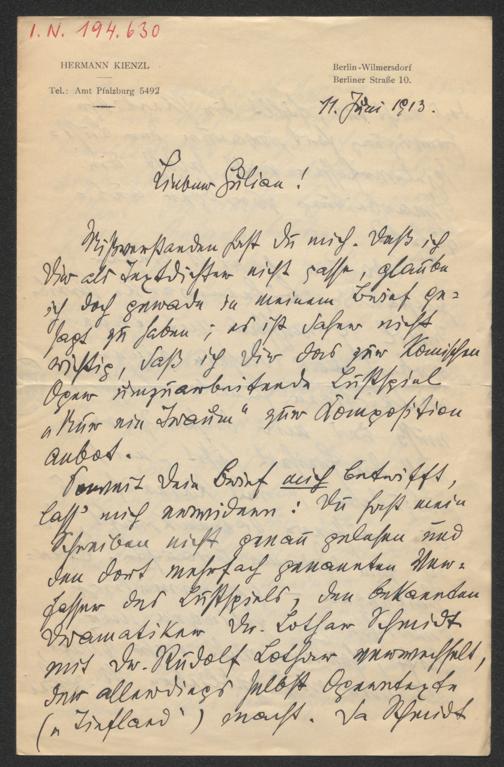 I. N. 194.630
HERMANN KIENZL
Tel.: Amt Pfalzburg 5492
Berlin-Wilmersdorf
Berliner Straße 10.
11. Juni 1913.
Lieber Julian!
Mißverstanden hast Du mich. Daß ich
Dir als Textdichter nicht passe, glaube
ich doch gerade in meinem Brief ge-
sagt zu haben; es ist daher nicht
richtig, daß ich Dir das zur komischen
Oper umzuarbeitende Lustspiel
„Nur ein Traum" zur Composition
anbot.
Soweit Dein Brief mich betrifft,
lass' mich erwidern: Du hast mein
Schreiben nicht genau gelesen und
den dort mehrfach genannten Ver-
fasser des Lustspiels, den bekannten
Dramatiker Dr. Lothar Schmidt
mit Dr. Rudolf Lothar verwechselt,
der allerdings selbst Operntexte
(„Tiefland") macht. Da Schmidt